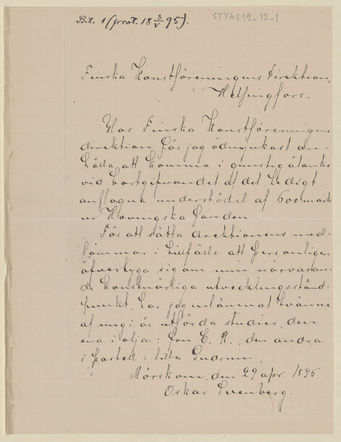 Bil. 1 (prot. 18 2/V 95).
STYAC19-12-1
Finska Konstföreningens Direktion,
Helsingfors.
Hos Finska Konstföreningens
direktion får jag ödmjukast an-
hålla, att komma i gunstig åtanke
vid bortgifvandet af det ledigt
anslagna understödet af 600 mark
ur Hovingska fonden.
För att sätta direktionens med-
lemmar i tillfälle att personligen
öfvertyga sig om min närvaran-
de konstnärliga utvecklingsstånd-
punkt, har jag inlämnat tvänne
af mig i år utförda studier, den
ena i olja: Fru E. R., den andra
i pastell: lilla Gudrun.
Mörskom, den 29 apr. 1895
Oskar